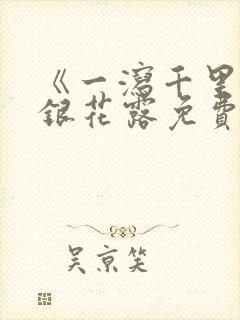 《一瀉千里
銀花露免費
吴京笑